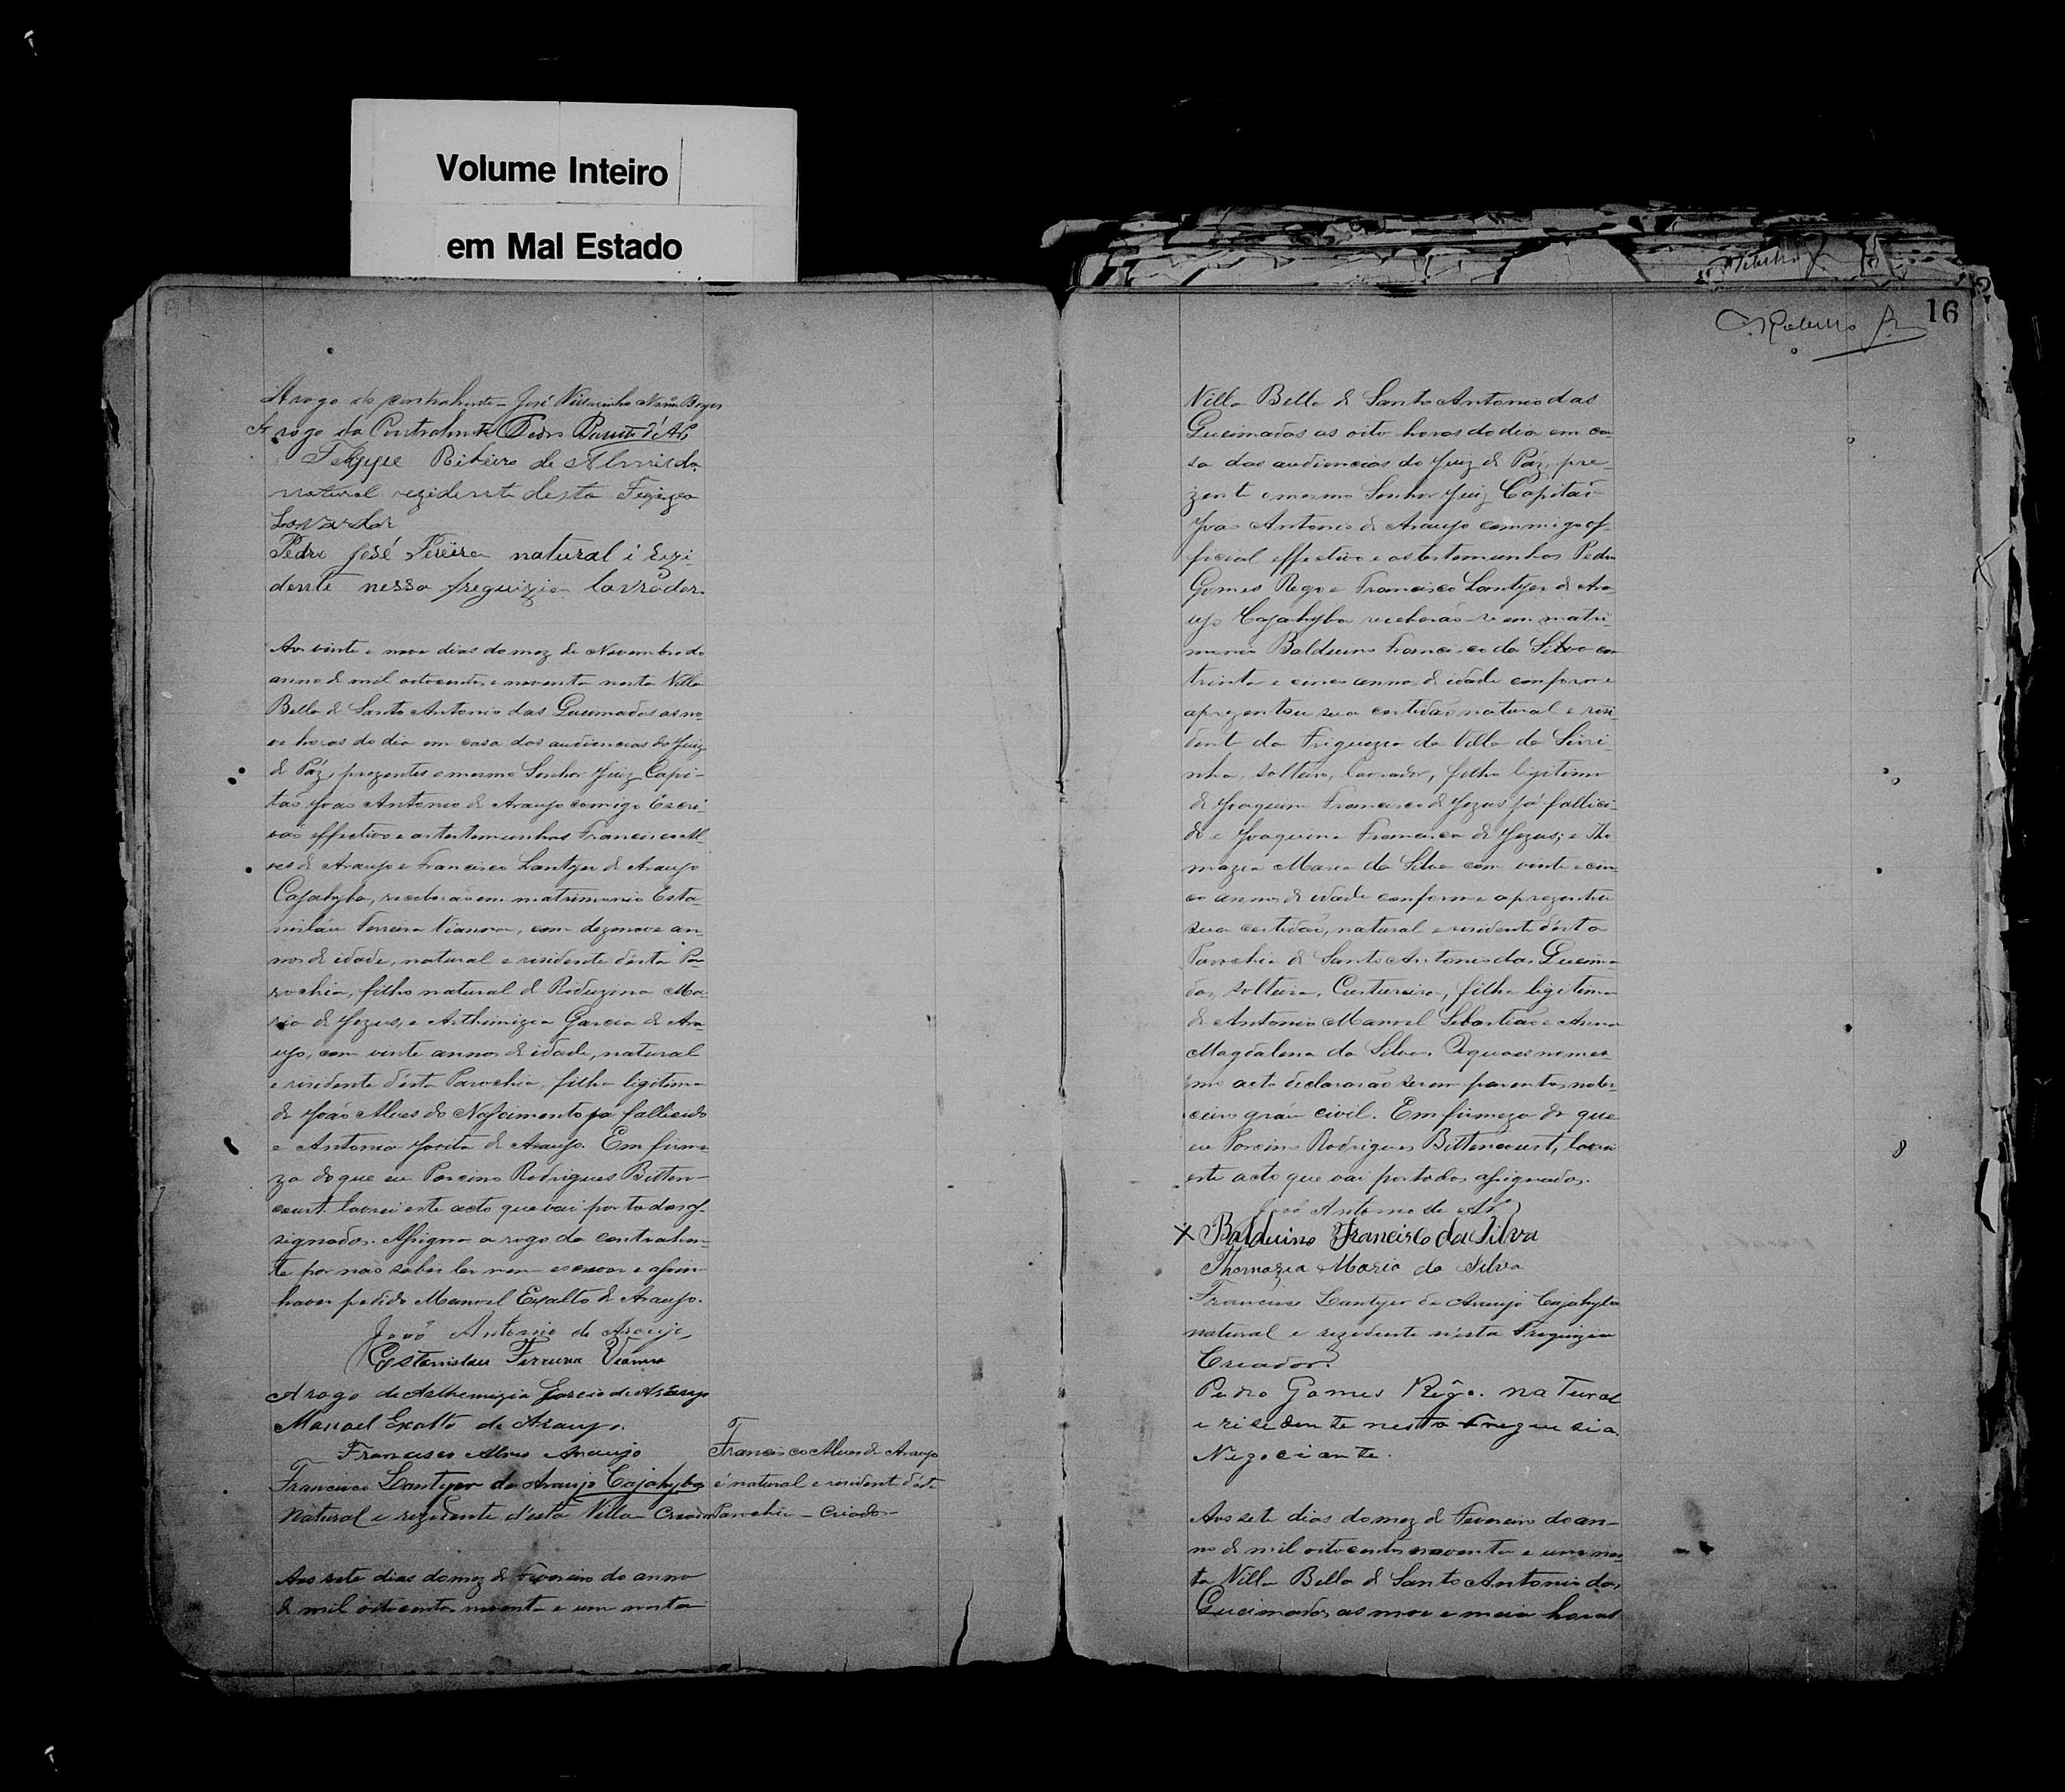 Volume Inteiro
em Mal Estado
Arogo do contrahente José
A rogo da Contrahente Pedro
Felippe Ribeiro de Almeida
natural rezidente desta
Lavrador
Pedro José Pereira natural i Rezi-
dente nessa freguizia lavrador.
Aos vinte e nove dias do mez de Novembro do
anno de mil oitocentos e noventa nesta Villa
Bella de Santo Antonio das Queimadas as no-
ve horas do dia em casa das audiencias do Juiz
de Páz, prezentes o mesmo Senhor Juiz Capi-
tão João Antonio de Araujo comigo Escri-
vão effectivo e as testemunhas Francisco Al-
ves de Araujo e Francisco Lantyer de Araujo
Cajahyba, receberão em matrimonio Esta-
nisláu Ferreira Vianna, com dezenove an-
nos de idade, natural e residente d'esta Pa-
rochia, filho natural de Ma-
ria de Jezus, e Arthimizia Garcia de Ara-
ujo, com vinte annos de idade, natural
e residente d'esta Parochia, filha ligitima
de João Alves do Nascimento já fallicido
e Antonia de Araujo. Em firme-
za do que eu Porcino Rodrigues Bitten-
court lavrei este acto que vai por todos as-
signados. Assigna a rogo da contrahen-
te por não saber ler nem escrever e assim
haver pedido Manoel Exalto de Araujo.
João Antonio de Araujo
Estanislau Ferreira Vianna
A rogo de Arthemizia Garcia de Araujo
Manoel Exalto de Araujo.
Francisco Alves Araujo
Francisco Lantyer de Araujo Cajahyba
Natural e rezidente d'esta Villa Creador
Francisco Alves de Araujo
é natural e residente d'esta
Parochia - Criador
Aos sete dias do mez de Fevereiro do anno
de mil oitocentos noventa e um nesta
16
Villa Bella de Santo Antonio das
Queimadas as oito horas do dia em ca-
sa das audiencias do Juiz de Páz, pre-
zente o mesmo Senhor Juiz Capitão
João Antonio de Araujo commigo of-
ficial effectivo e as testemunhas Pedro
Gomes Rego e Francisco Lantyer de Ara-
ujo Cajahyba receberão-se em matri-
monio Balduino Francisco da Silva com
trinta e cinco annos de idade conforme
aprezentou sua certidão natural e resi-
dente da Friguezia da Villa da Serri-
nha, solteiro, lavrador, filho ligitimo
de Joaquim Francisco de Jezus já fallici-
do e Joaquina Francisca de Jezus; e Tho-
mazia Maria da Silva com vinte e cin-
co annos de idade conforme aprezentou
sua certidão, natural e residente d'esta
Parochia de Santo Antonio das Queima-
das, solteira, Custureira, filha ligitima
de Antonio Manoel Sebastião e Anna
Magdalena da Silva. Os quaes no mes-
mo acto declararão serem parentes no ter-
ceiro gráu civil. Em firmeza do que
eu Porcino Rodrigues Bittencourt, lavrei
este acto que vai por todos assignados.
João Antonio de Ar
X Balduino Francisco da Silva
Thomazia Maria da Silva
Francisco Lantyer de Araujo Cajahyba
natural e rezidente n'esta Freguizia
Creador.
Pedro Gomes Rêgo. natural
e risidente nesta Freguesia
Negociante.
8
Aos sete dias do mez de Fevereiro do an-
no de mil oitocentos noventa e um nes-
ta Villa Bella de Santo Antonio das
Queimadas as nove e meia horas